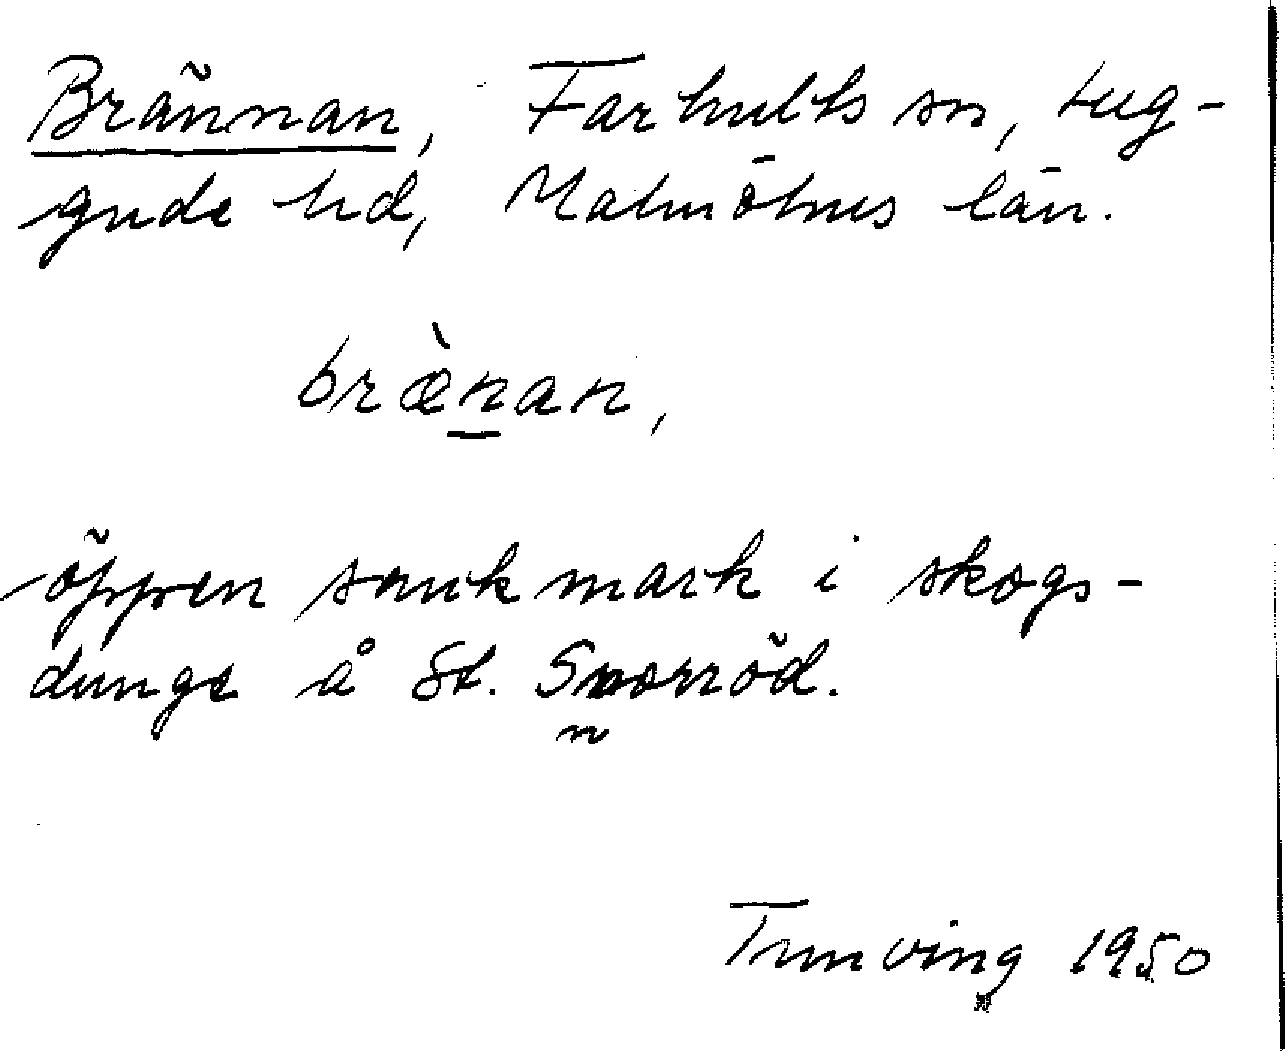 Brännan, Farhults sn, Lug-
gude hd, Malmöhus län.
bræ̀n̲an,
öppen sank mark i skogs-
dunge å St. Snorröd.
n
Tunving 1950